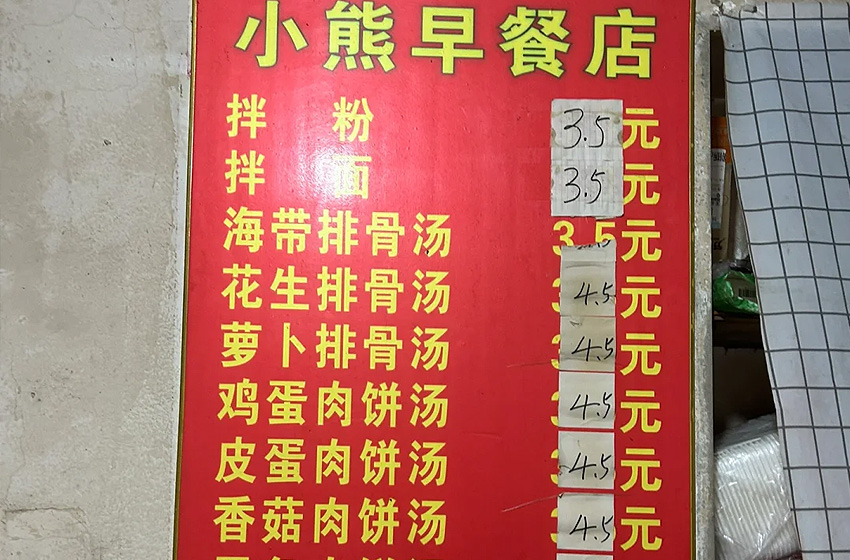 小熊早餐店
拌 粉 3.5元
拌 面 3.5元
海带排骨汤 3.5元
花生排骨汤 4.5元
萝卜排骨汤 4.5元
鸡蛋肉饼汤 4.5元
皮蛋肉饼汤 4.5元
香菇肉饼汤 4.5元